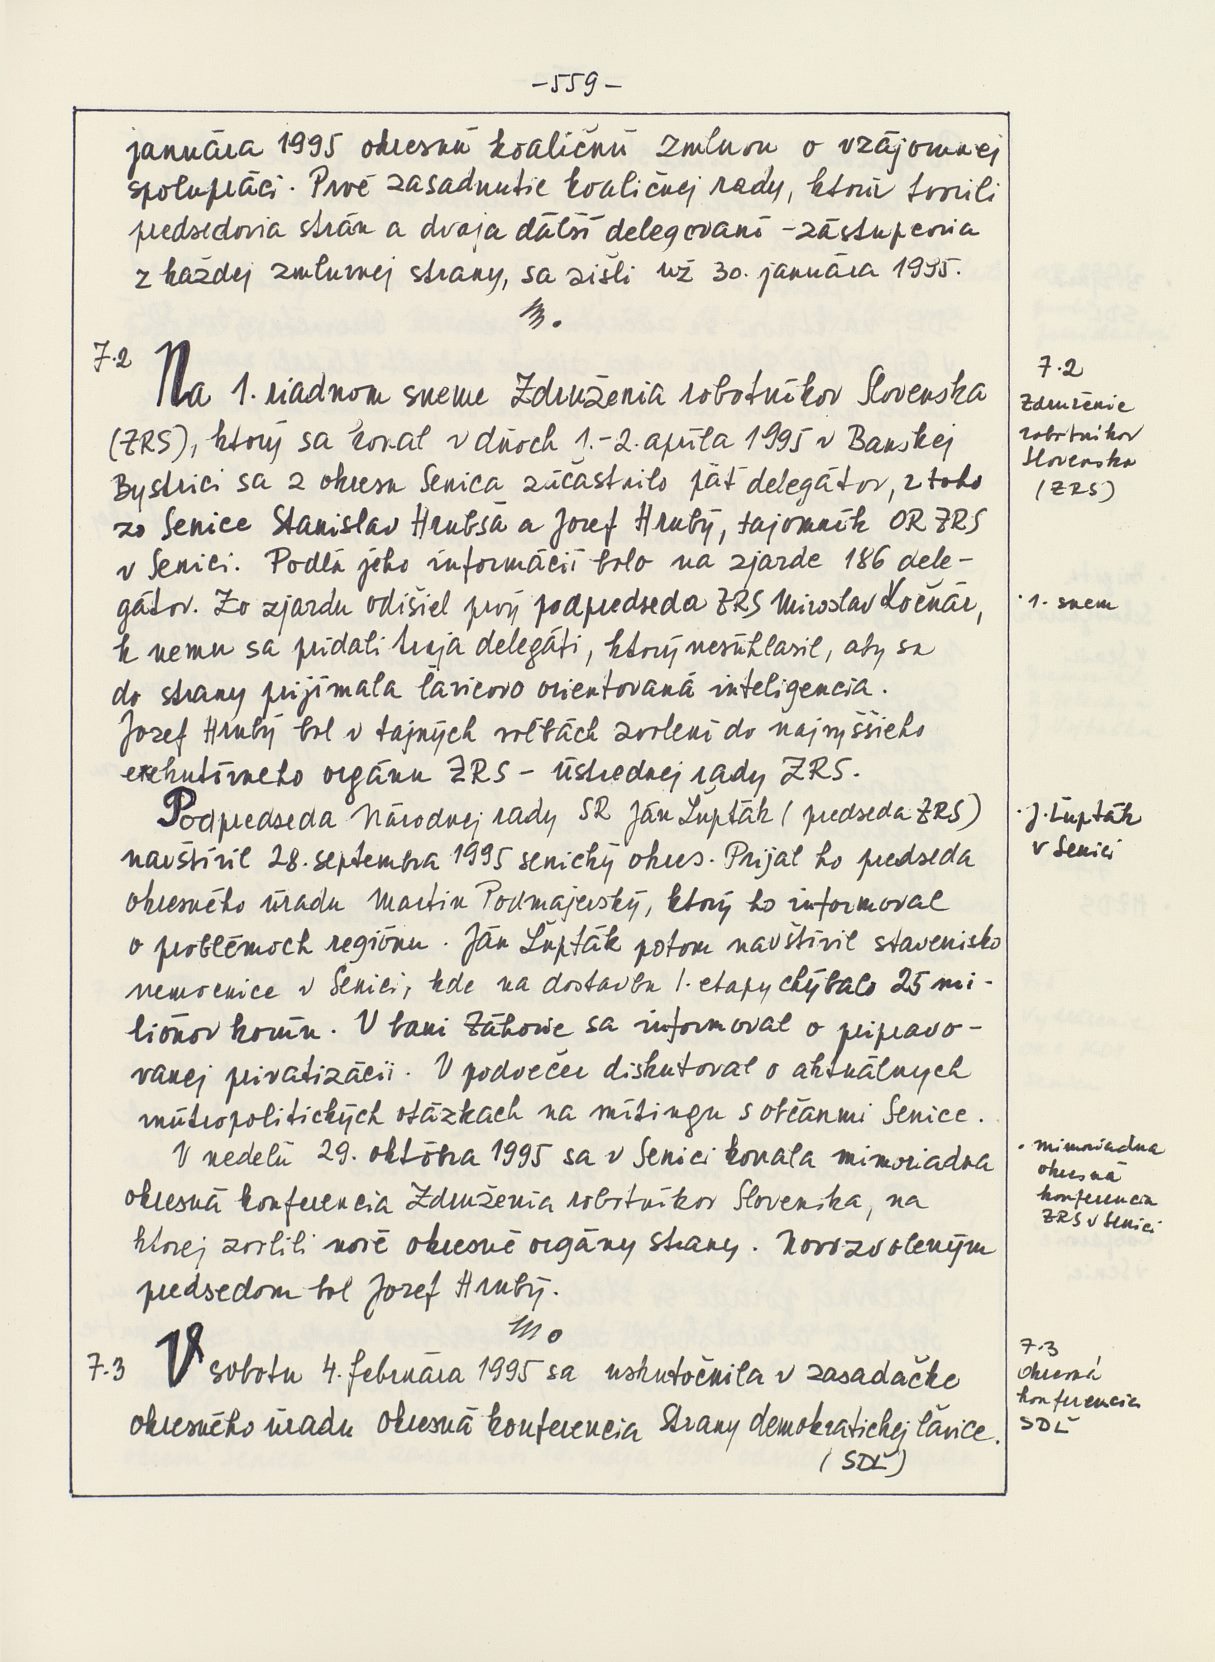 -559-
januára 1995 okresnú koaličnú zmluvu o vzájomnej
spolupráci. Prvé zasadnutie koaličnej rady, ktorú tvorili
predsedovia strán a dvaja ďalší delegovaní - zástupcovia
z každej zmluvnej strany, sa zišli už 30. januára 1995.
7.2 Na 1. riadnom sneme Združenia robotníkov Slovenska
(ZRS), ktorý sa konal v dňoch 1.-2. apríla 1995 v Banskej
Bystrici sa z okresu Senica zúčastnilo päť delegátov, z toho
zo Senice Stanislav Hrubša a Jozef Hrubý, tajomník OR ZRS
v Senici. Podľa jeho informácií bolo na zjazde 186 dele-
gátov. Zo zjazdu odišiel prvý podpredseda ZRS Miroslav Kočnár,
k nemu sa pridali traja delegáti, ktorý nesúhlasil, aby sa
do strany prijímala ľavicovo orientovaná inteligencia.
Jozef Hrubý bol v tajných voľbách zvolení do najvyššieho
exekutívneho orgánu ZRS - ústrednej rady ZRS.
Podpredseda Národnej rady SR Ján Ľupták (predseda ZRS)
navštívil 28. septembra 1995 senický okres. Prijal ho predseda
okresného úradu Martin Podmajerský, ktorý ho informoval
o problémoch regiónu. Ján Ľupták potom navštívil stavenisko
nemocnice v Senici, kde na dostavbu 1. etapy chýbalo 25 mi-
liónov korún. V bani Záhorie sa informoval o pripravo-
vanej privatizácii. V podvečer diskutoval o aktuálnych
vnútropolitických otázkach na mítingu s občanmi Senice.
V nedeľu 29. októbra 1995 sa v Senici konala mimoriadna
okresná konferencia Združenia robotníkov Slovenska, na
ktorej zvolili nové okresné orgány strany. Novozvoleným
predsedom bol Jozef Hrubý.
7.3 V sobotu 4. februára 1995 sa uskutočnila v zasadačke
okresného úradu okresná konferencia Strany demokratickej ľavice.
(SDĽ)
7.2
Združenie
robotníkov
Slovenska
(ZRS)
· 1. snem
· J. Ľupták
v Senici
· mimoriadna
okresná
konferencia
ZRS v Senici
7.3
Okresná
konferencia
SDĽ